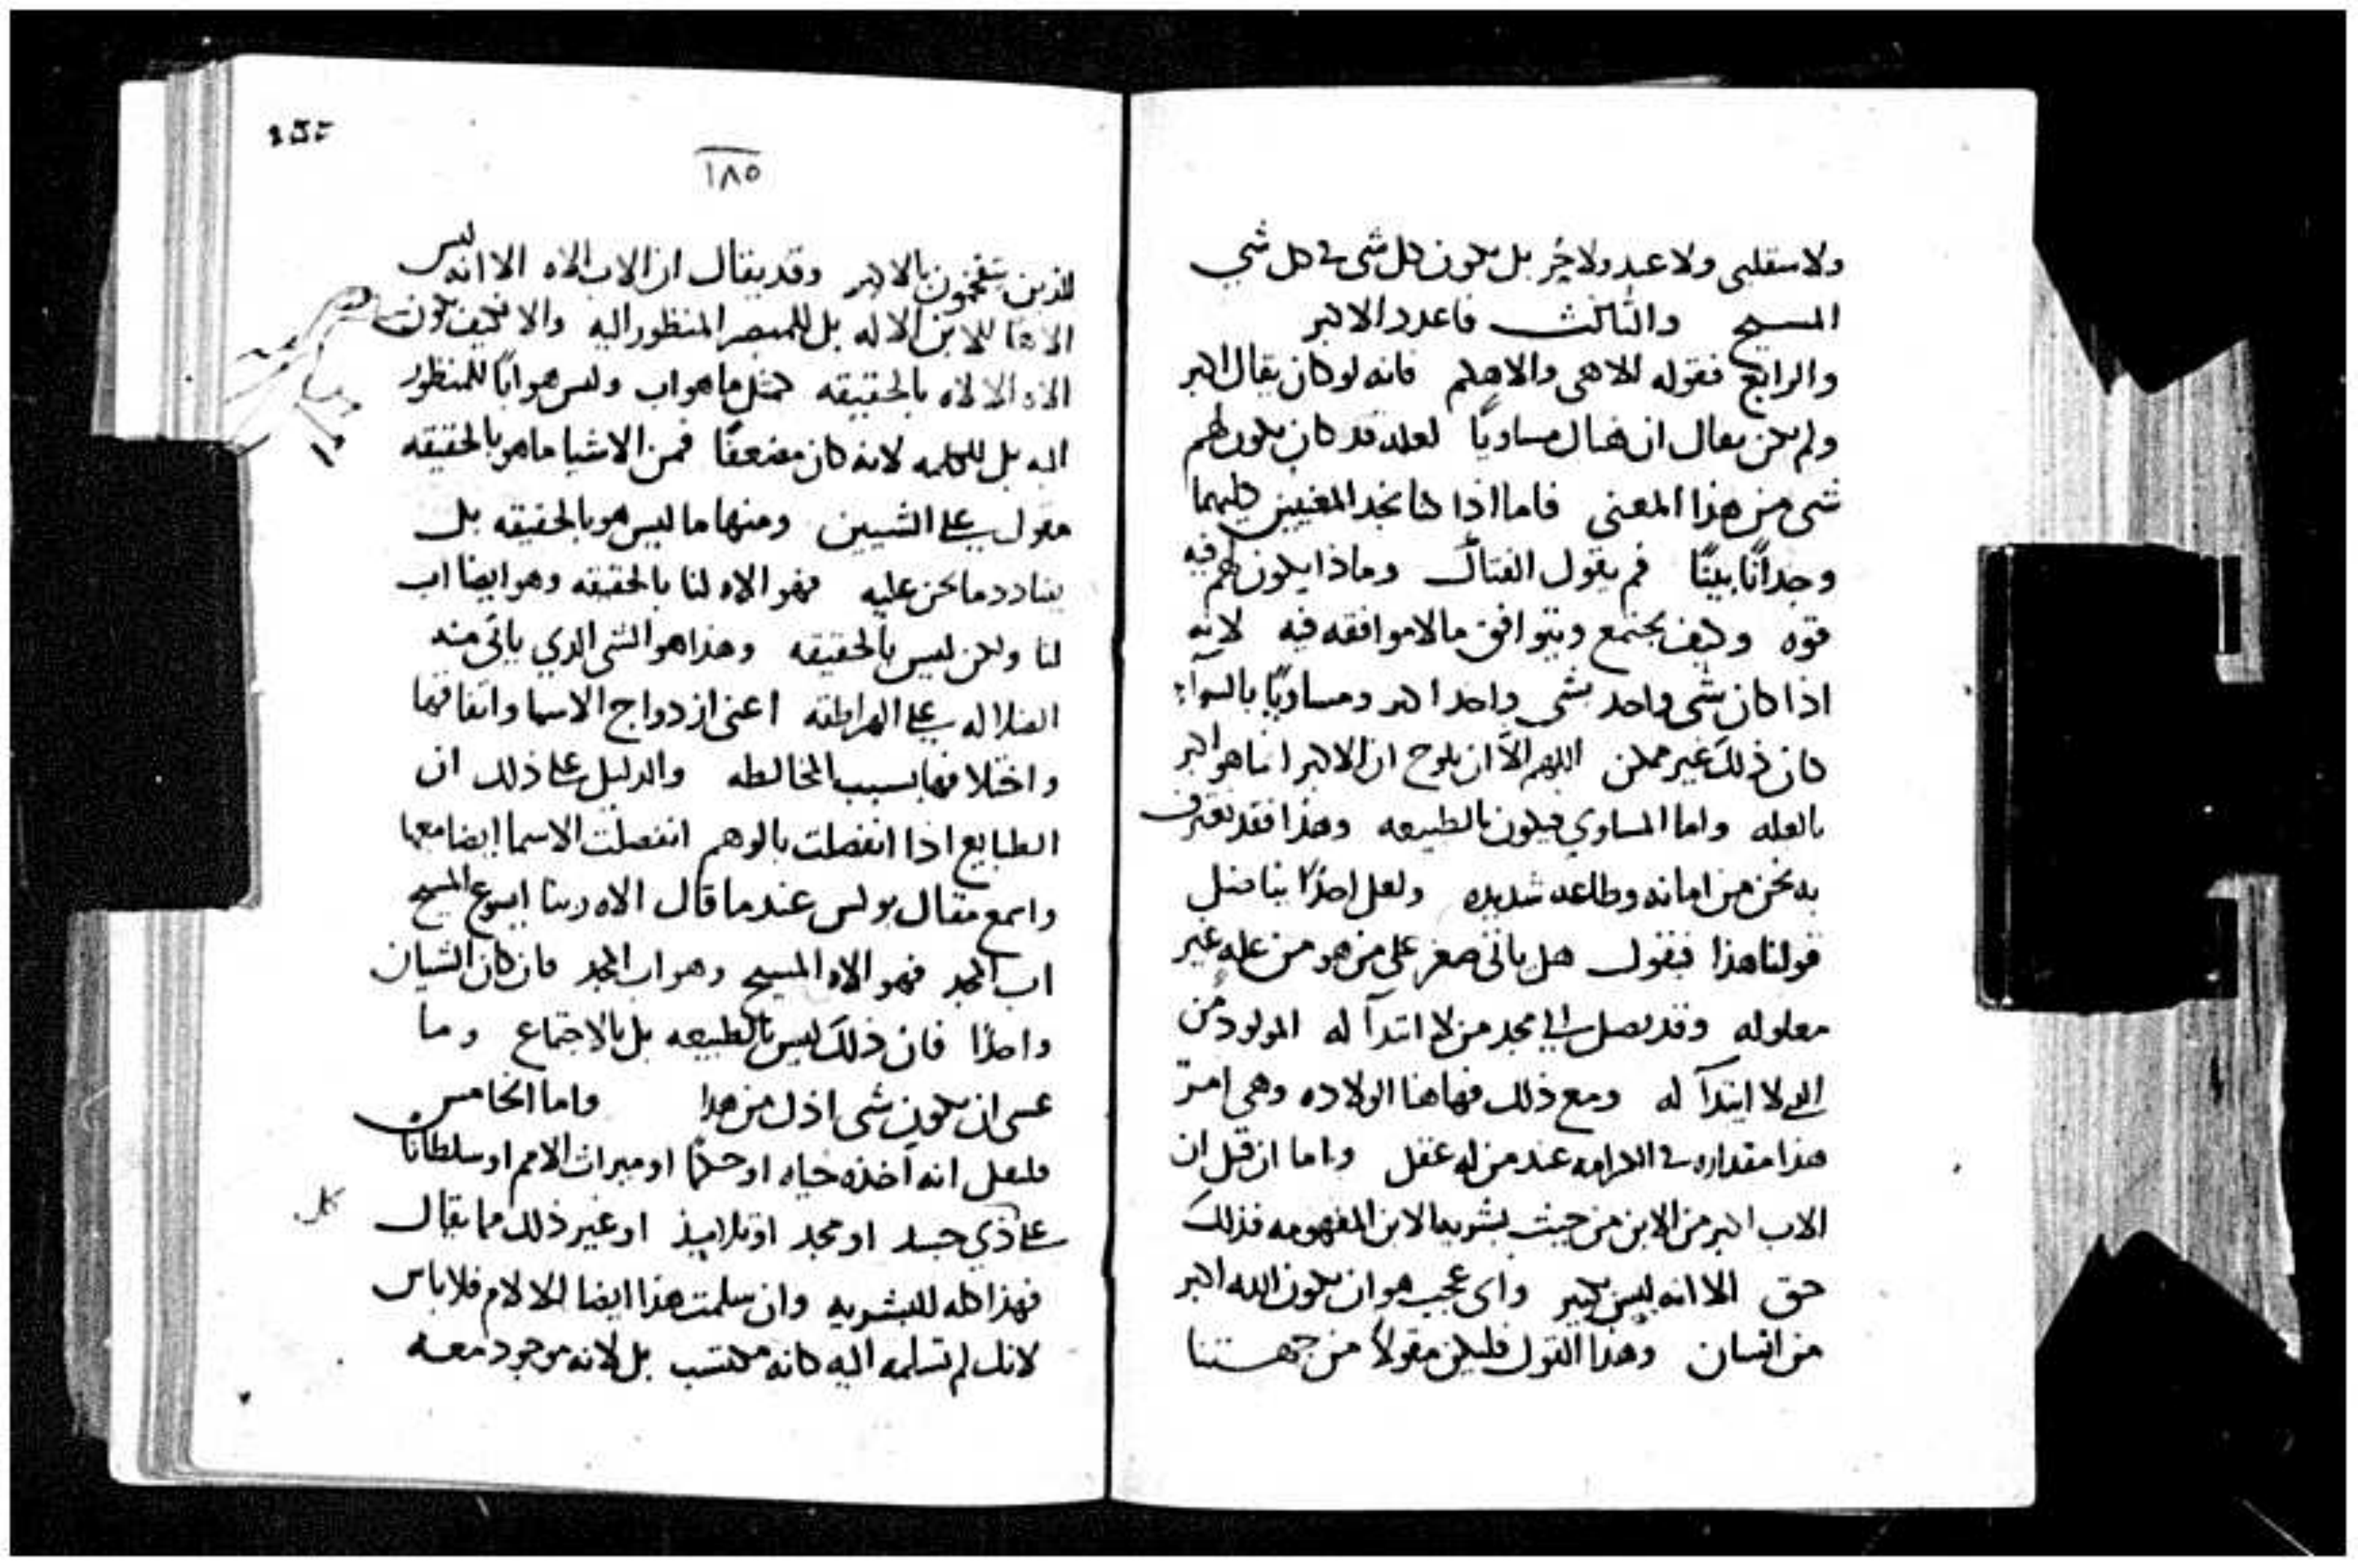 ولا سقلبى ولا عبد ولا حُر بل يكون كل شى فى كل شي
المسيح والثالث فاعدد الاكبر
والرابع فقوله الاهى والاهكم فانه لو كان يقال اكبر
ولم يكن يقال ان هناك مساويًا لعله قد كان يكون لهم
شى من هذا المعنى فاما اذا كنا نجد المعنيين كليهما
وجدانًا بينًا فم يقول الفتاك وماذا يكون لهم فيه
قوه وكيف يجتمع ويتوافق ما لا موافقه فيه لانه
اذا كان شى واحد بشى واحد اكبر ومساويًا بالسوآء
كان ذلك غير ممكن اللهم الاّ ان يلوح ان الاكبر انما هو اكبر
بالعله واما المساوي فيكون بالطبيعه وهذا فقد نعترف
به نحن من امانه وطاعه شديده ولعل احدًا يناضل
قولنا هذا فيقول هل ياتى صغر على من هو من عله غير
معلوله وقد يصل الى مجد من لا ابتدآ له المولود من
الذي لا ابتدآ له ومع ذلك فهاهنا الولاده وهي امرٌ
هذا مقداره فى الكرامه عند من له عقل واما ان قيل ان
الاب اكبر من الابن من حيث بشرية الابن المفهومه فذلك
حق الا انه ليس بكبير واى عجب هو ان يكون الله اكبر
من انسان وهذا القول فليكن مقولاً من جهتنا
١٨٥
للذين يتفخمون بالاكبر وقد يقال ان الاب الاه الا انه ليس
الاهًا للابن الاله بل للمبصر المنظور اليه والا فكيف يكون
الاه الالاه بالحقيقه كمثل ما هو اب وليس هو ابًا للمنظور
اليه بل للكلمه لانه كان مضعفًا فمن الاشيا ما هو بالحقيقه
مقول على الشيين ومنها ما ليس هو بالحقيقه بل
بضادد ما نحن عليه فهو الاه لنا بالحقيقه وهو ايضا اب
لنا ولكن ليس بالحقيقه وهذا هو الشى الذي ياتى منه
الضلاله على الهراطقه اعنى ازدواج الاسما واتفاقهما
واختلافهما بسبب المخالطه والدليل على ذلك ان
الطبايع اذا انفصلت بالوهم انفصلت الاسما ايضا معها
واسمع مقال بولس عندما قال الاه ربنا ايسوع المسيح
اب المجد فهو الاه المسيح وهو اب المجد فان كان الشيان
واحدًا فان ذلك ليس بالطبيعه بل بالاجتماع وما
عسى ان يكون شى اذل من هذا واما الخامس
فلعل انه اخذه حياه او حكمًا او ميراث الامم او سلطانًا
على ذي جسد او مجد او تلاميذ او غير ذلك مما يقال
كل
فهذا كله للبشريه وان سلمت هذا ايضا للالام فلا باس
لانك لم تسلمه اليه كانه مكتسب بل لانه موجود معه